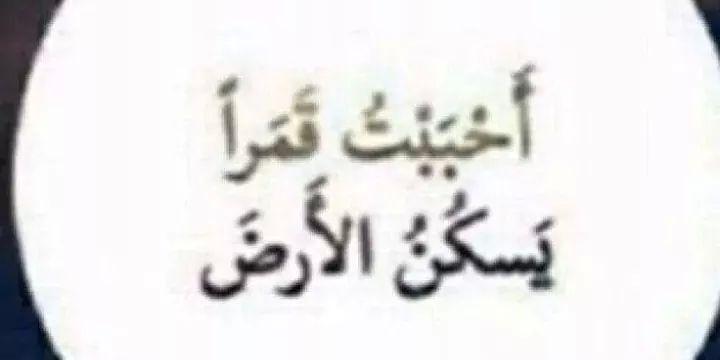 أَحْبَبْتُ قَمَراً
يَسكُنُ الأَرضَ